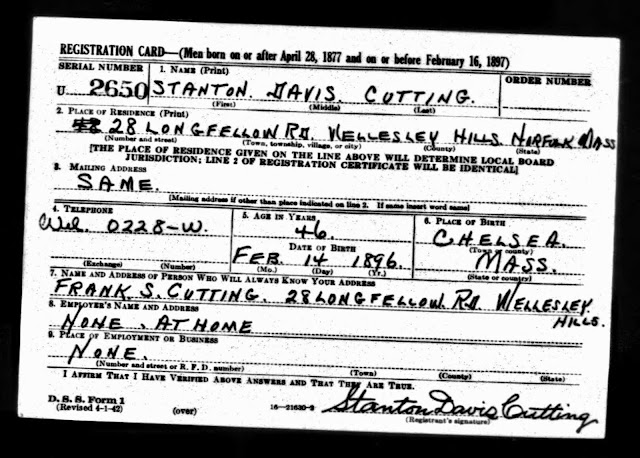 REGISTRATION CARD—(Men born on or after April 28, 1877 and on or before February 16, 1897)
SERIAL NUMBER
1. NAME (Print)
ORDER NUMBER
U 2650
STANTON. DAVIS. CUTTING.
(First) (Middle) (Last)
2. PLACE OF RESIDENCE (Print)
28 LONGFELLOW RD. WELLESLEY HILLS. NORFOLK MASS
(Number and street) (Town, township, village, or city) (County) (State)
[THE PLACE OF RESIDENCE GIVEN ON THE LINE ABOVE WILL DETERMINE LOCAL BOARD
JURISDICTION; LINE 2 OF REGISTRATION CERTIFICATE WILL BE IDENTICAL]
3. MAILING ADDRESS
SAME.
[Mailing address if other than place indicated on line 2. If same insert word same]
4. TELEPHONE
Wel. 0228-W.
(Exchange) (Number)
5. AGE IN YEARS
46.
DATE OF BIRTH
FEB. 14 1896.
(Mo.) (Day) (Yr.)
6. PLACE OF BIRTH
CHELSEA.
(Town or county)
MASS.
(State or country)
7. NAME AND ADDRESS OF PERSON WHO WILL ALWAYS KNOW YOUR ADDRESS
FRANK S. CUTTING. 28 LONGFELLOW. RD. WELLESLEY
HILLS.
8. EMPLOYER'S NAME AND ADDRESS
NONE. AT HOME
9. PLACE OF EMPLOYMENT OR BUSINESS
NONE.
(Number and street or R. F. D. number) (Town) (County) (State)
I AFFIRM THAT I HAVE VERIFIED ABOVE ANSWERS AND THAT THEY ARE TRUE.
D. S. S. Form 1
(Revised 4-1-42) (over) 16—21630-2
Stanton Davis Cutting
(Registrant's signature)